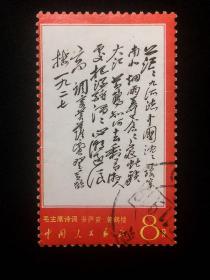 茫茫九派流中國沉沉一線穿
南北烟雨莽蒼蒼龜蛇鎖
大江黄鶴知何去剩有遊人
處把酒酹滔滔心潮逐浪
高 調寄菩薩蠻登黄鶴
楼一九二七
毛主席诗词 菩萨蛮·黄鹤楼
中国人民邮政 8分